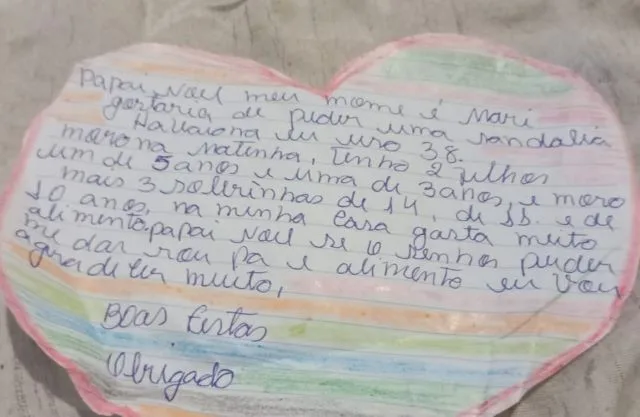 Papai Noel meu nome é Mari
gostaria de pidir uma sandalia
Havaiana eu uso 38.
moro na Matinha, tenho 2 filhos
um de 5 anos e uma de 3 anos, e moro
mais 3 sobrinhas de 14, de 13. e de
10 anos, na minha casa gasta muito
alimento. papai Noel se o senhor puder
me dar rou pa e alimento eu vou
agradecer muito,
Boas Festas
Obrigado